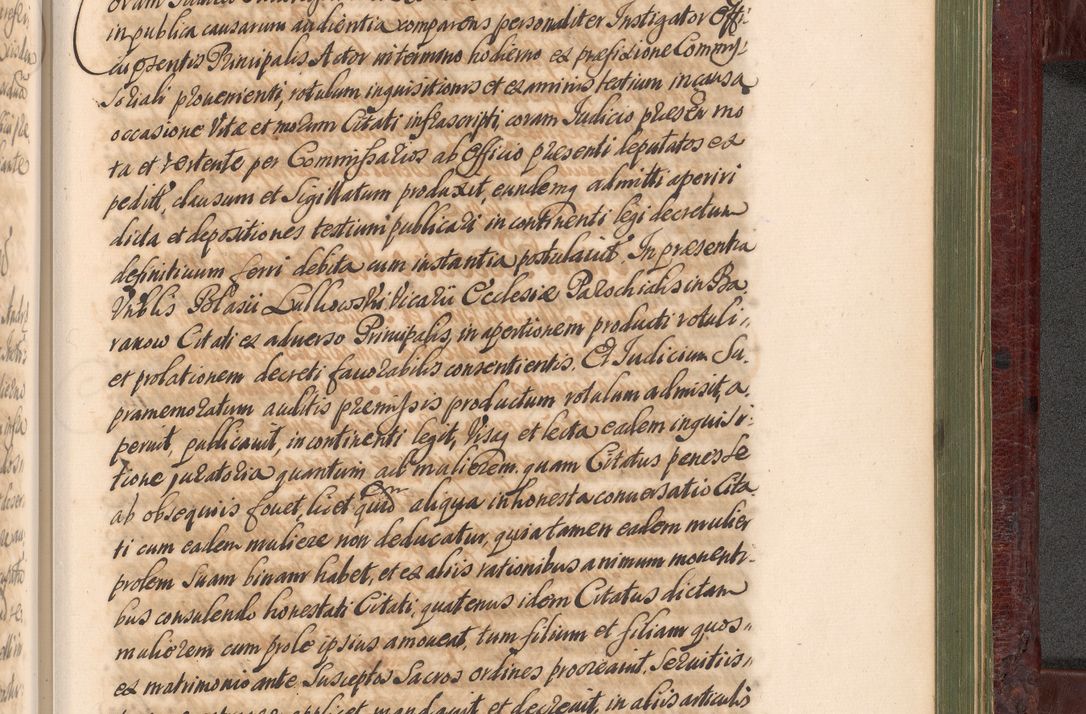 in publica causarum audientia comparens personaliter Instigator Offi-
cii presentis Principalis Actor in termino hodierno ex præfixione Commis-
soriali proveniente, rotulum inquisitionis et examinis testium in causa
occasione Vitæ et morum Citati infrascripti, coram Judicio præsenti mo
ta et vertente per Commissarios ab Officio presenti deputatos ex
pedit, clausum et Sigillatum produxit, eundemq admitti aperiri
dicta et depositiones testium publicari in continenti legi decretum
definitivum ferri debita cum instantia postulavit. In præsentia
Vnblis Blasii Vicarii Ecclesiæ Parochialis in Ba
ranow Citati ex adverso Principalis, in apertionem producti rotuli
et prolationem decreti favorabilis consentientis. Et Judicium Su-
pramemoratum auditis præmissis productum rotulum admisit, a-
peruit, publicavit, in continenti legit, Visaq et lecta eadem inquisi-
tione juratoria quantum ad mulierem, quam Citatus penes se
ab obsequiis fovet, licet quidem aliqua inhonesta conversatio Cita
ti cum eadem muliere non deducatur, quia tamen eadem mulier
prolem suam binam habet, et ex aliis rationibus animum moventi-
bus consulendo honestati Citati, quatenus idem Citatus dictam
mulierem cum prole ipsius amoveat, tum filium et filiam quos
ex matrimonio ante Susceptos Sacros ordines procreavit, servitiis
applicet mandavit et decrevit, in aliis articulis